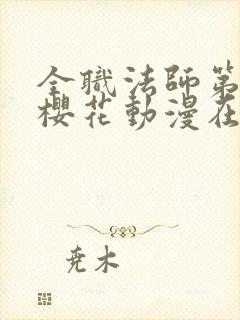 全職法師第
櫻花動漫在
尭木